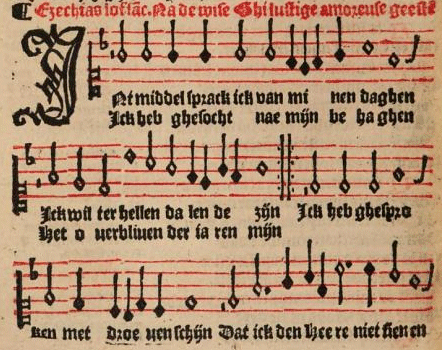 ¶ Ezechias lofsāc. Na de wise Ghi lustige amoreuse geeste
INt middel sprack ick van mi nen daghen
Ick heb ghesocht nae mijn be ha ghen
Ick wil ter hellen da len de zijn Ick heb ghespro
Het o uerbliuen der ia ren mijn
ken met droe uen schijn Dat ick den Hee re niet sien en